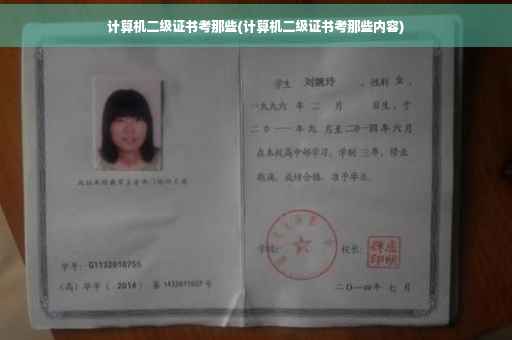 计算机二级证书考那些(计算机二级证书考那些内容)
学生 刘婉玲 ，性别 女 ，
一九九六 年 二 月 日生，于
二〇一一年九 月至二〇一四年六月
在本校高中部学习，学制 三年，修业
期满，成绩合格，准予毕业。
学号： G1132010755
(高) 毕字 ( 2014 ) 第 1432011007 号
学校：
校长：
二〇一四年 七 月